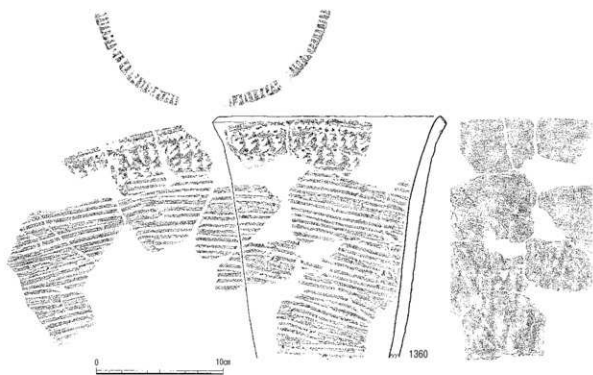 1360
0 10cm